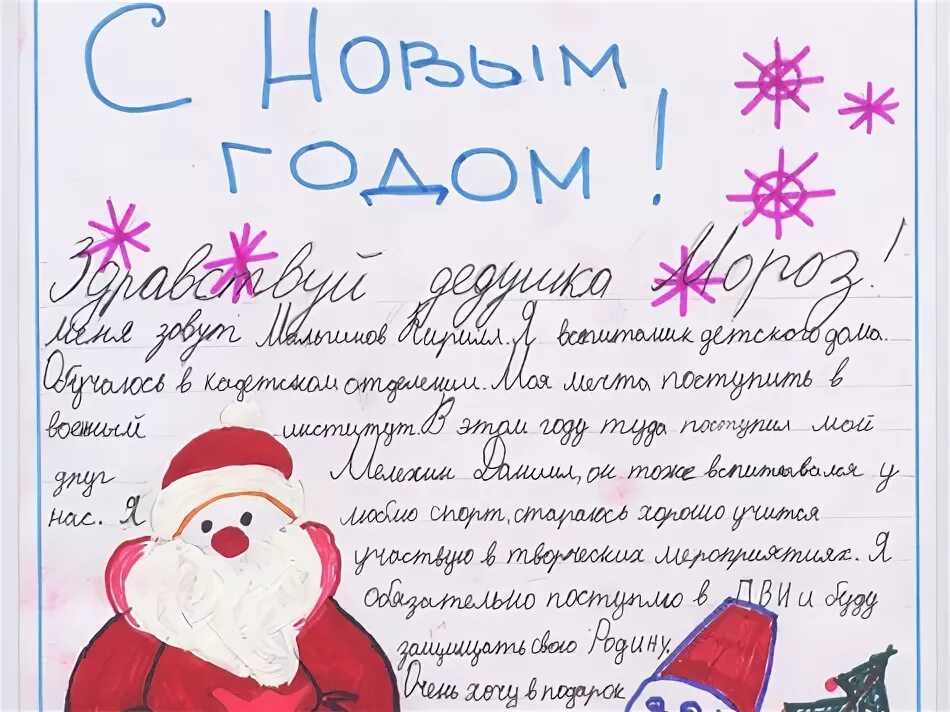 С Новым
годом!
Здравствуй дедушка Мороз!
Меня зовут Малышнов Кирилл. Я воспитаник детского дома.
Обучаюсь в кадетском отделении. Моя мечта поступить в
военный институт. В этом году туда поступил мой
друг Мелехин Даниил, он тоже вспитывался у
нас. Я люблю спорт, стараюсь хорошо учится
участвую в творческих мероприятиях. Я
обязательно поступлю в ПВИ и буду
защищать свою Родину.
Очень хочу в подарок